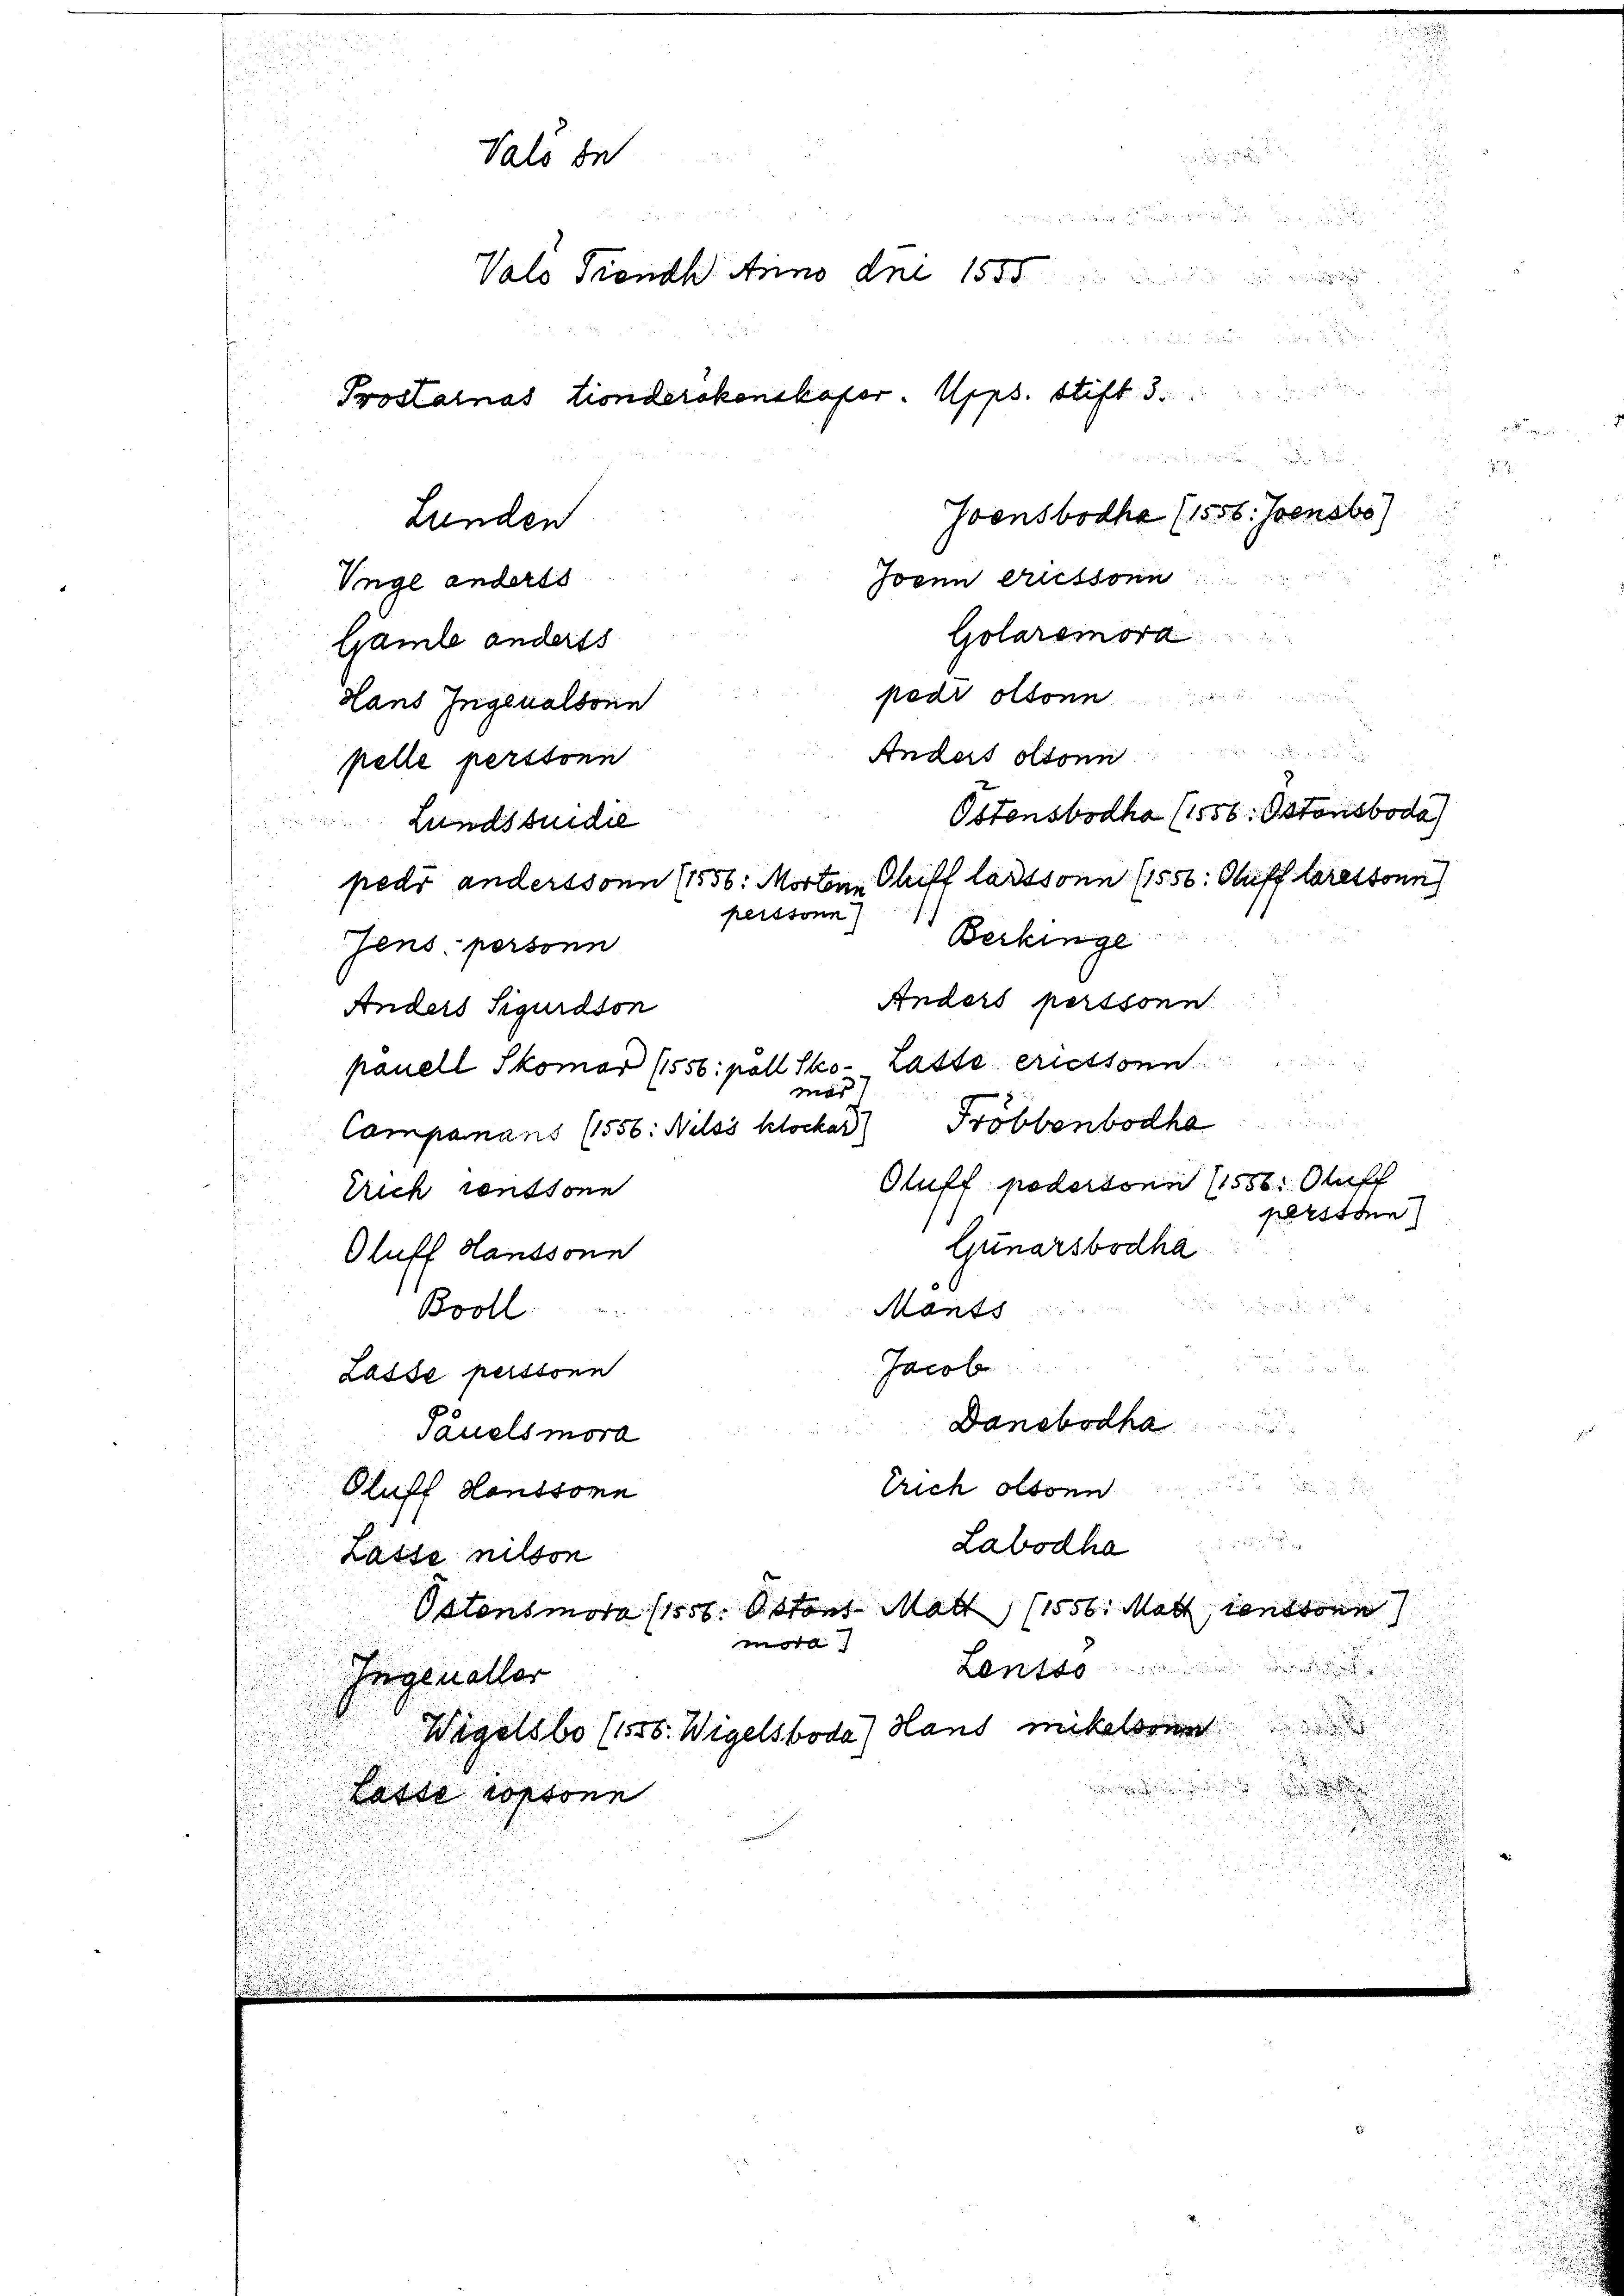 Valö sn
Valö Tiendh Anno dni 1555
Prostarnas tionderäkenskaper. Upps. stift 3.
Lunden
Vnge anderss
Gamle anderss
Hans Ingeualsonn
pelle perssonn
Lundssuidie
pedr anderssonn (1556: Mortenn
perssonn)
Jens personn
Anders Sigurdson
påuell Skomar (1556: påll Sko-
mar)
Companans (1556: Nilss klockar)
Erich ienssonn
Oluff Hanssonn
Booll
Lasse perssonn
Påuelsmora
Oluff Hanssonn
Lasse nilson
Östensmora (1556: Östens-
mora)
Ingeualler
Wigelsbo (1556: Wigelsboda)
Lasse iopsonn
Joensbodha (1556: Joensbo)
Joenn ericssonn
Golaremora
pedr olsonn
Anders olsonn
Östensbodha (1556: Östensboda)
Oluff larssonn (1556: Oluff laressonn)
Berkinge
Anders perssonn
Lasse ericssonn
Fröbbenbodha
Oluff pedersonn (1556: Oluff
perssonn)
Gunarsbodha
Månss
Jacob
Danebodha
Erich olsonn
Labodha
Matt (1556: Matt, ienssonn)
Lenssö
Hans mikelsonn